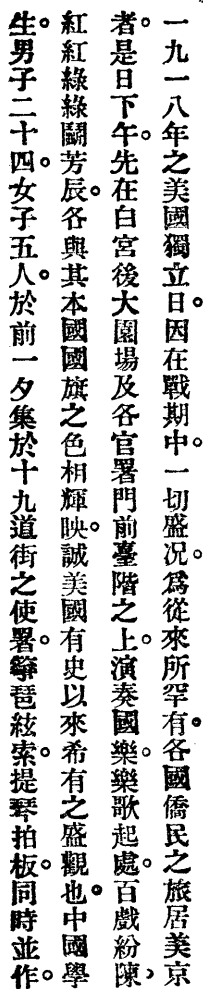 一九一八年之美國獨立日。因在戰期中。一切盛况。爲從來所罕有。各國僑民之旅居美京
者。是日下午。先在白宮後大園場及各官署門前臺階之上。演奏國樂。樂歌起處。百戲紛陳、
紅紅綠綠鬭芳辰。各與其本國國旗之色相輝映。誠美國有史以來希有之盛觀也。中國學
生男子二十四。女子五人。於前一夕集於十九道街之使署。箏琶絃索。提琴拍板。同時並作。